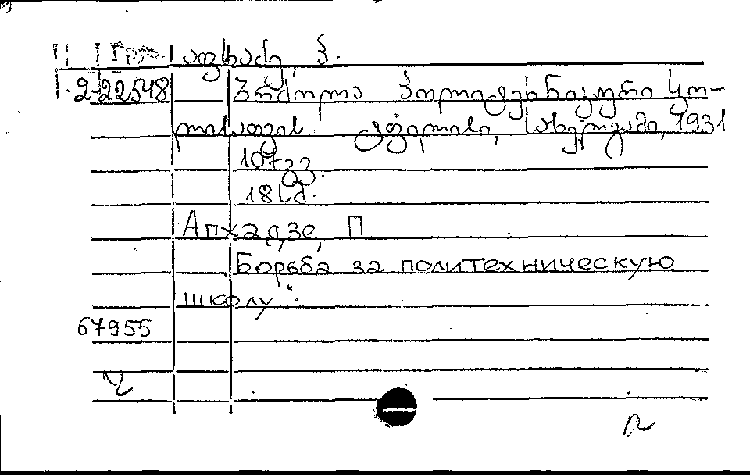 აფხაძე პ.
2-22548 ბრძოლა პოლიტექნიკური სკო-
ლისათვის ტფილისი, სახელგამი, 1931
107გვ.
18სმ.
Апхадзе, П
Борьба за политехническую
школу".
67955